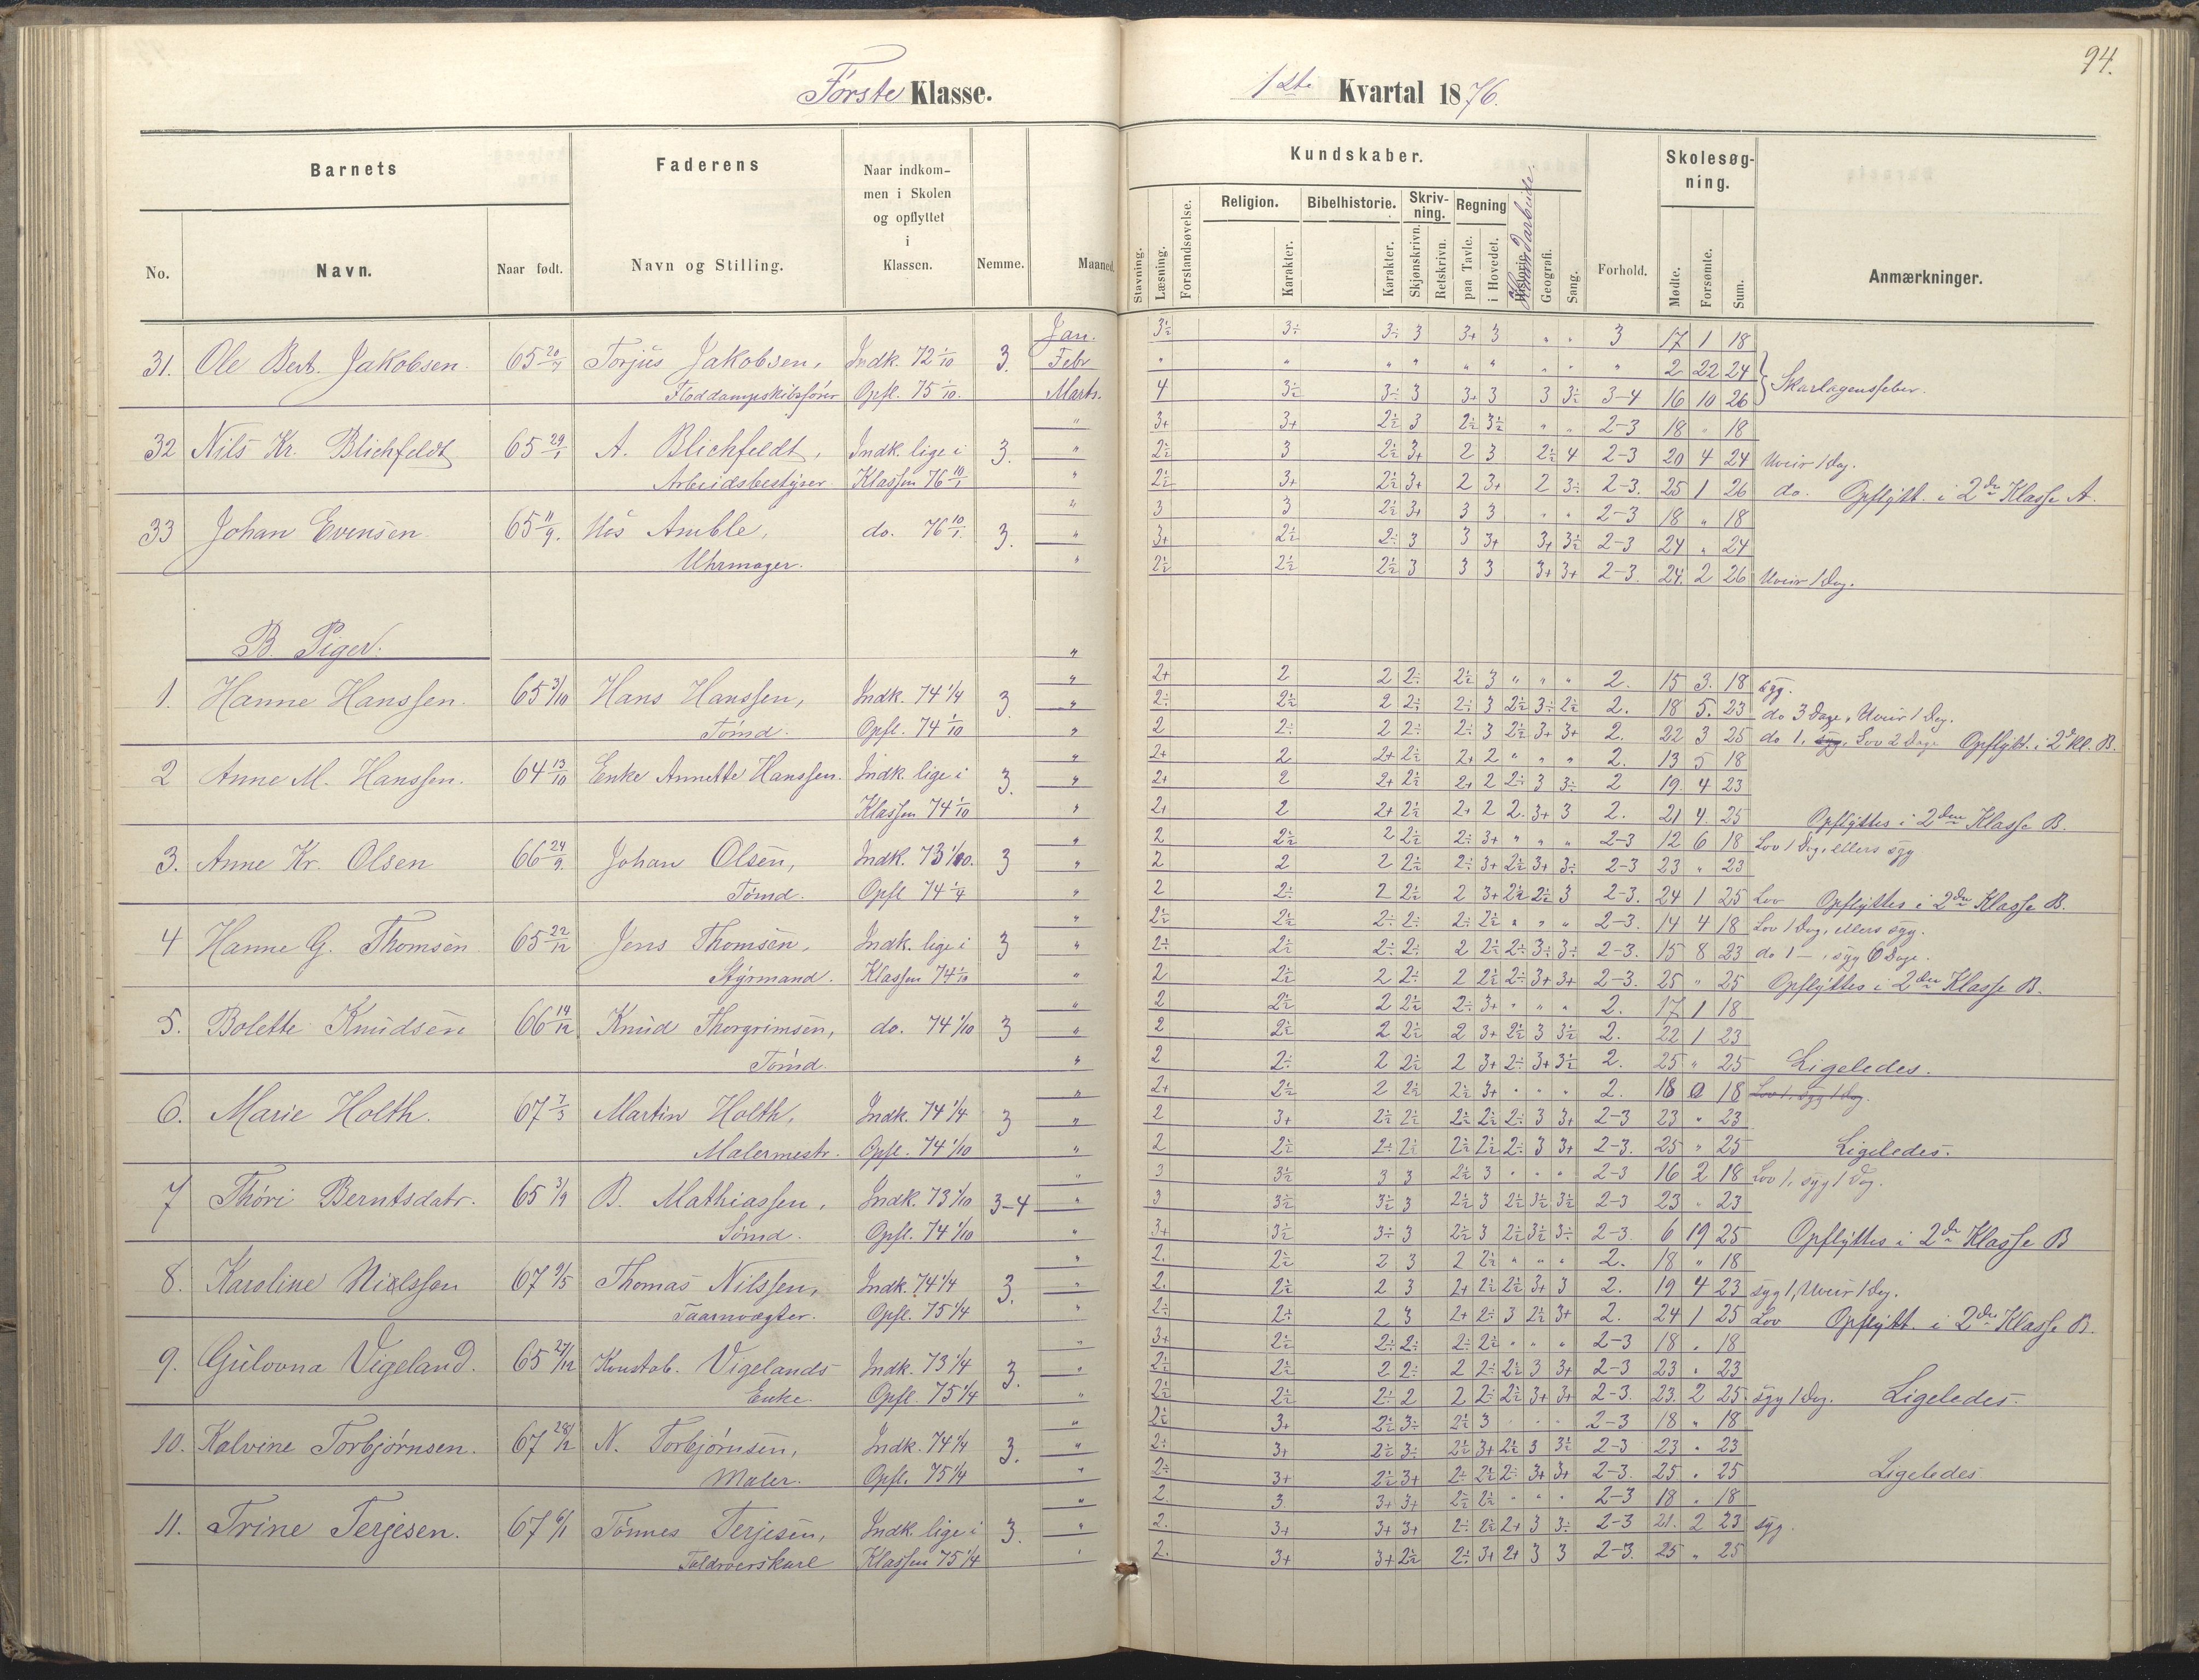 94.
Første Klasse.
1ste Kvartal 1876.
Barnets
Faderens
Naar indkom-
men i Skolen
og opflyttet
i
Klassen.
Nemme.
Maaned.
No.
Navn.
Naar født.
Navn og Stilling.
Kundskaber.
Stavning.
Læsning.
Forstandsøvelse.
Religion.
Karakter.
Bibelhistorie.
Karakter.
Skriv-
ning.
Skjønskrivn.
Retskrivn.
Regning
paa Tavle.
i Hovedet.
Historie.
Haandarbeide.
Geografi.
Sang.
Forhold.
Skolesøg-
ning.
Mødte.
Forsømte.
Sum.
Anmærkninger.
Jan. 3½ 3÷ 3÷ 3 3+ 3 " " 3 17 1 18
31. Ole Bert. Jakobsen. 65 20/7 Torjus Jakobsen, Indk. 72 1/10 3. Febr " " " " " " " " " 2 22 24
Floddampskibsfører Opfl. 75 1/10. Marts. 4 3½ 3÷ 3 3+ 3 3 3½ 3-4 16 10 26 } Skarlagensfeber.
" 3+ 3+ 2½ 3 2½ 3½ " " 2-3 18 " 18
32 Nils Kr. Blichfeldt 65 29/1 A. Blichfeldt, Indk. lige i 3. " 2½ 3 2½ 3+ 2 3 2½ 4 2-3 20 4 24 Uveir 1 Dag.
Arbeidsbestyrer Klassen 76 10/1 " 2½ 3+ 2½ 3+ 2 3+ 2 3÷ 2-3. 25 1 26 do. Opflytt. i 2den Klasse A.
" 3 3 2½ 3+ 3 3 " " 2-3 18 " 18
33 Johan Evensen 65 11/9. Hos Amble, do. 76 10/1. 3. " 3+ 2½ 2÷ 3 3 3+ 3+ 3½ 2-3 24 " 24
Uhrmager. " 2½ 2½ 2½ 3 3 3 3+ 3+ 2-3. 24. 2 26 Uveir 1 Dag.
B. Piger.
" 2+ 2 2 2÷ 2½ 3 " " " 2. 15 3. 18 syg.
1. Hanne Hanssen. 65 3/10 Hans Hanssen, Indk. 74 1/4 3 " 2÷ 2½ 2 2÷ 2÷ 3 2½ 3÷ 2½ 2. 18 5. 23 do 3 Dage, Uveir 1 Dag.
Tømd. Opfl. 74 1/10 " 2 2÷ 2 2÷ 2÷ 3 2½ 3+ 3+ 2. 22 3 25 do 1, syg, Lov 2 Dage Opflytt. i 2d Kl. B.
" 2+ 2 2+ 2½ 2+ 2 " " " 2. 13 5 18
2 Anne M. Hanssen. 64 13/10 Enke Annette Hanssen. Indk. lige i 3. " 2+ 2 2+ 2½ 2+ 2 2÷ 3 3÷ 2 19 4 23
Klassen 74 1/10 " 2+ 2 2+ 2½ 2+ 2 2. 3+ 3 2. 21 4. 25 Opflyttes i 2den Klasse B.
" 2 2½ 2 2½ 2÷ 3+ " " " 2-3 12 6 18 Lov 1 Dag, ellers syg
3. Anne Kr. Olsen 66 24/9. Johan Olsen, Indk. 73 1/10. 3 " 2 2 2 2½ 2÷ 3+ 2½ 3+ 3÷ 2-3 23 " 23
Tømd. Opfl 74 1/4 " 2 2÷ 2 2½ 2 3+ 2½ 2½ 3 2-3. 24 1 25 Lov Opflyttes i 2den Klasse B.
" 2½ 2½ 2÷ 2÷ 2÷ 2½ " " " 2-3. 14 4 18 Lov 1 Dag, ellers syg.
4 Hanne G. Thomsen 65 22/12 Jens Thomsen, Indk. lige i 3 " 2÷ 2½ 2÷ 2÷ 2 2½ 2÷ 3÷ 3÷ 2-3. 15 8 23 do 1 –, syg 6 Dage.
Styrmand. Klassen 74 1/10 " 2 2½ 2 2÷ 2 2½ 2÷ 3+ 3+ 2-3. 25 " 25 Opflyttes i 2den Klasse B.
" 2 2½ 2 2½ 2÷ 3+ " " " 2. 17 1 18
5. Bolette Knudsen 66 14/12 Knud Thorgrimsen, do. 74 1/10 3 " 2 2½ 2 2½ 2 3+ 2½ 3 3½ 2. 22 1 23
Tømd. " 2 2÷ 2 2½ 2 3+ 2÷ 3+ 3½ 2. 25 " 25 Ligeledes.
" 2+ 2½ 2 2½ 2½ 3+ " " " 2. 18 0 18 Lov 1, syg 1 Dag.
6. Marie Holth. 67 7/3 Martin Holth, Indk. 74 1/4 3 " 2 3+ 2½ 2½ 2½ 2½ 2÷ 3 3+ 2-3 23 " 23
Malermestr. Opfl. 74 1/10 " 2 2½ 2÷ 2½ 2½ 2½ 2÷ 3 3+ 2-3. 25 " 25 Ligeledes.
" 3 3½ 3 3 2½ 3 " " " 2-3 16 2 18 Lov 1, syg 1 Dag.
7 Thøri Berntsdatr. 65 3/9 B. Mathiassen, Indk. 73 1/10 3-4 " 3 3½ 3½ 3 2½ 3 2½ 3½ 3½ 2-3 23 " 23
Sømd. Opfl. 74 1/10 " 3+ 3½ 3÷ 3 2½ 3 2½ 3½ 3÷ 2-3. 6 19 25 Opflyttes i 2den Klasse B
" 2. 2½ 2 3 2 2½ " " " 2. 18 " 18
8. Karoline Nielssen 67 9/5 Thomas Nilssen, Indk. 74 1/4 3. " 2. 2½ 2 3 2+ 2½ 2½ 3+ 3 2. 19 4 23 syg 1, Uveir 1 Dag.
Taarnvægter. Opfl. 75 1/4 " 2÷ 2÷ 2 3 2+ 2÷ 3 2½ 3+ 2. 24 1 25 Lov Opflytt. i 2den Klasse B.
" 3+ 2½ 2÷ 2÷ 2÷ 2½ " " " 2-3 18 " 18
9. Gulovna Vigeland. 65 27/12 Konstab. Vigelands Indk. 73 1/4 3. " 2½ 2½ 2 2÷ 2 2÷ 2½ 3 3+ 2-3 23 " 23
Enke. Opfl. 75 1/4 " 2½ 2½ 2÷ 2 2 2÷ 2½ 3+ 3+ 2-3. 23. 2 25. syg 1 Dag. Ligeledes.
" 2½ 3+ 2½ 3÷ 2½ 3 " " " 2-3 18 " 18
10. Kalvine Torbjørnsen. 67 28/12 N. Torbjørnsen, Indk. 74 1/4 3. " 2÷ 3+ 2½ 3÷ 2½ 3+ 2½ 3 3½ 2-3 23 " 23
Maler. Opfl. 75 1/4 " 2÷ 3+ 2½ 3+ 2÷ 2½ 2÷ 3+ 3+ 2-3. 25. " 25 Ligeledes
" 2. 3 3+ 3+ 2½ 2½ " " " 2-3 18 " 18
11. Trine Terjesen. 67 6/1 Tønnes Terjesen, Indk. lige i 3. " 2. 3+ 3+ 3+ 2÷ 2½ 2+ 3 3÷ 2-3 21. 2 23 syg.
Toldroerskarl Klassen 75 1/4 " 2. 3+ 3+ 2½ 2÷ 3+ 2+ 3 3 2-3. 25 " 25